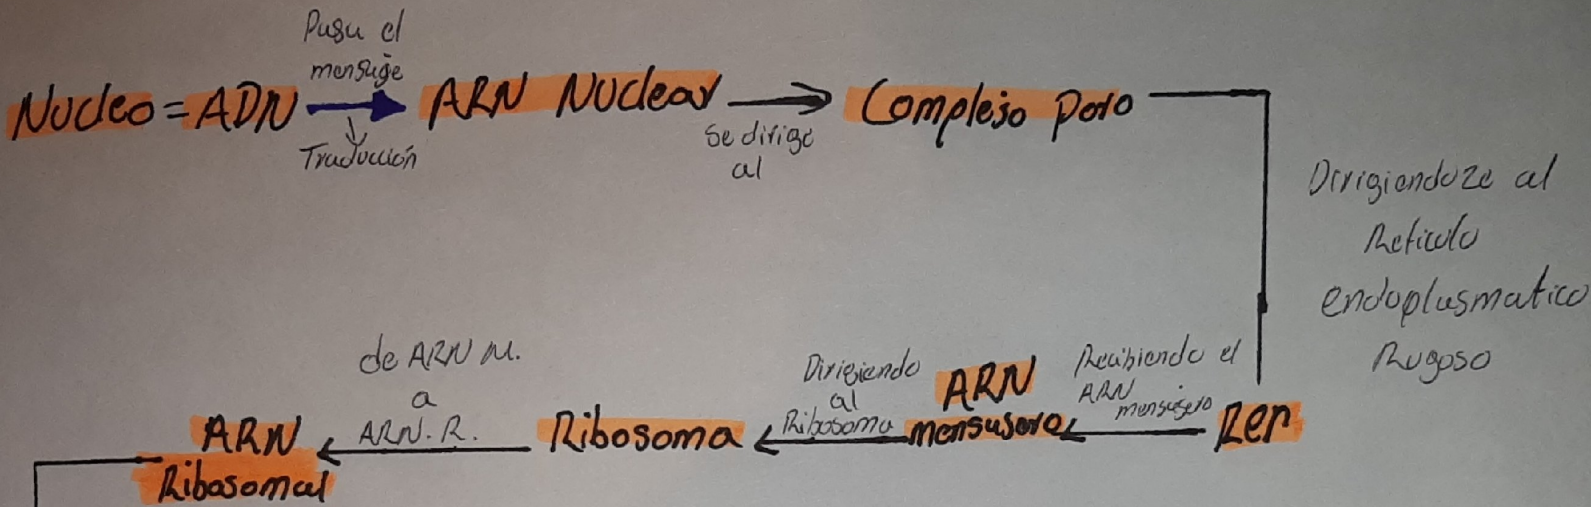 Pasa el
mensage
Nucleo = ADN
Traducción
ARN Nuclear
Se dirige
al
Complejo Poro
Dirigiendoze al
Reticulo
endoplasmatico
Rugoso
RER
Recibiendo el
ARN
mensajero
ARN
mensajero
Dirigiendo
al
Ribosoma
Ribosoma
de ARN M.
a
ARN. R.
ARN
Ribosomal